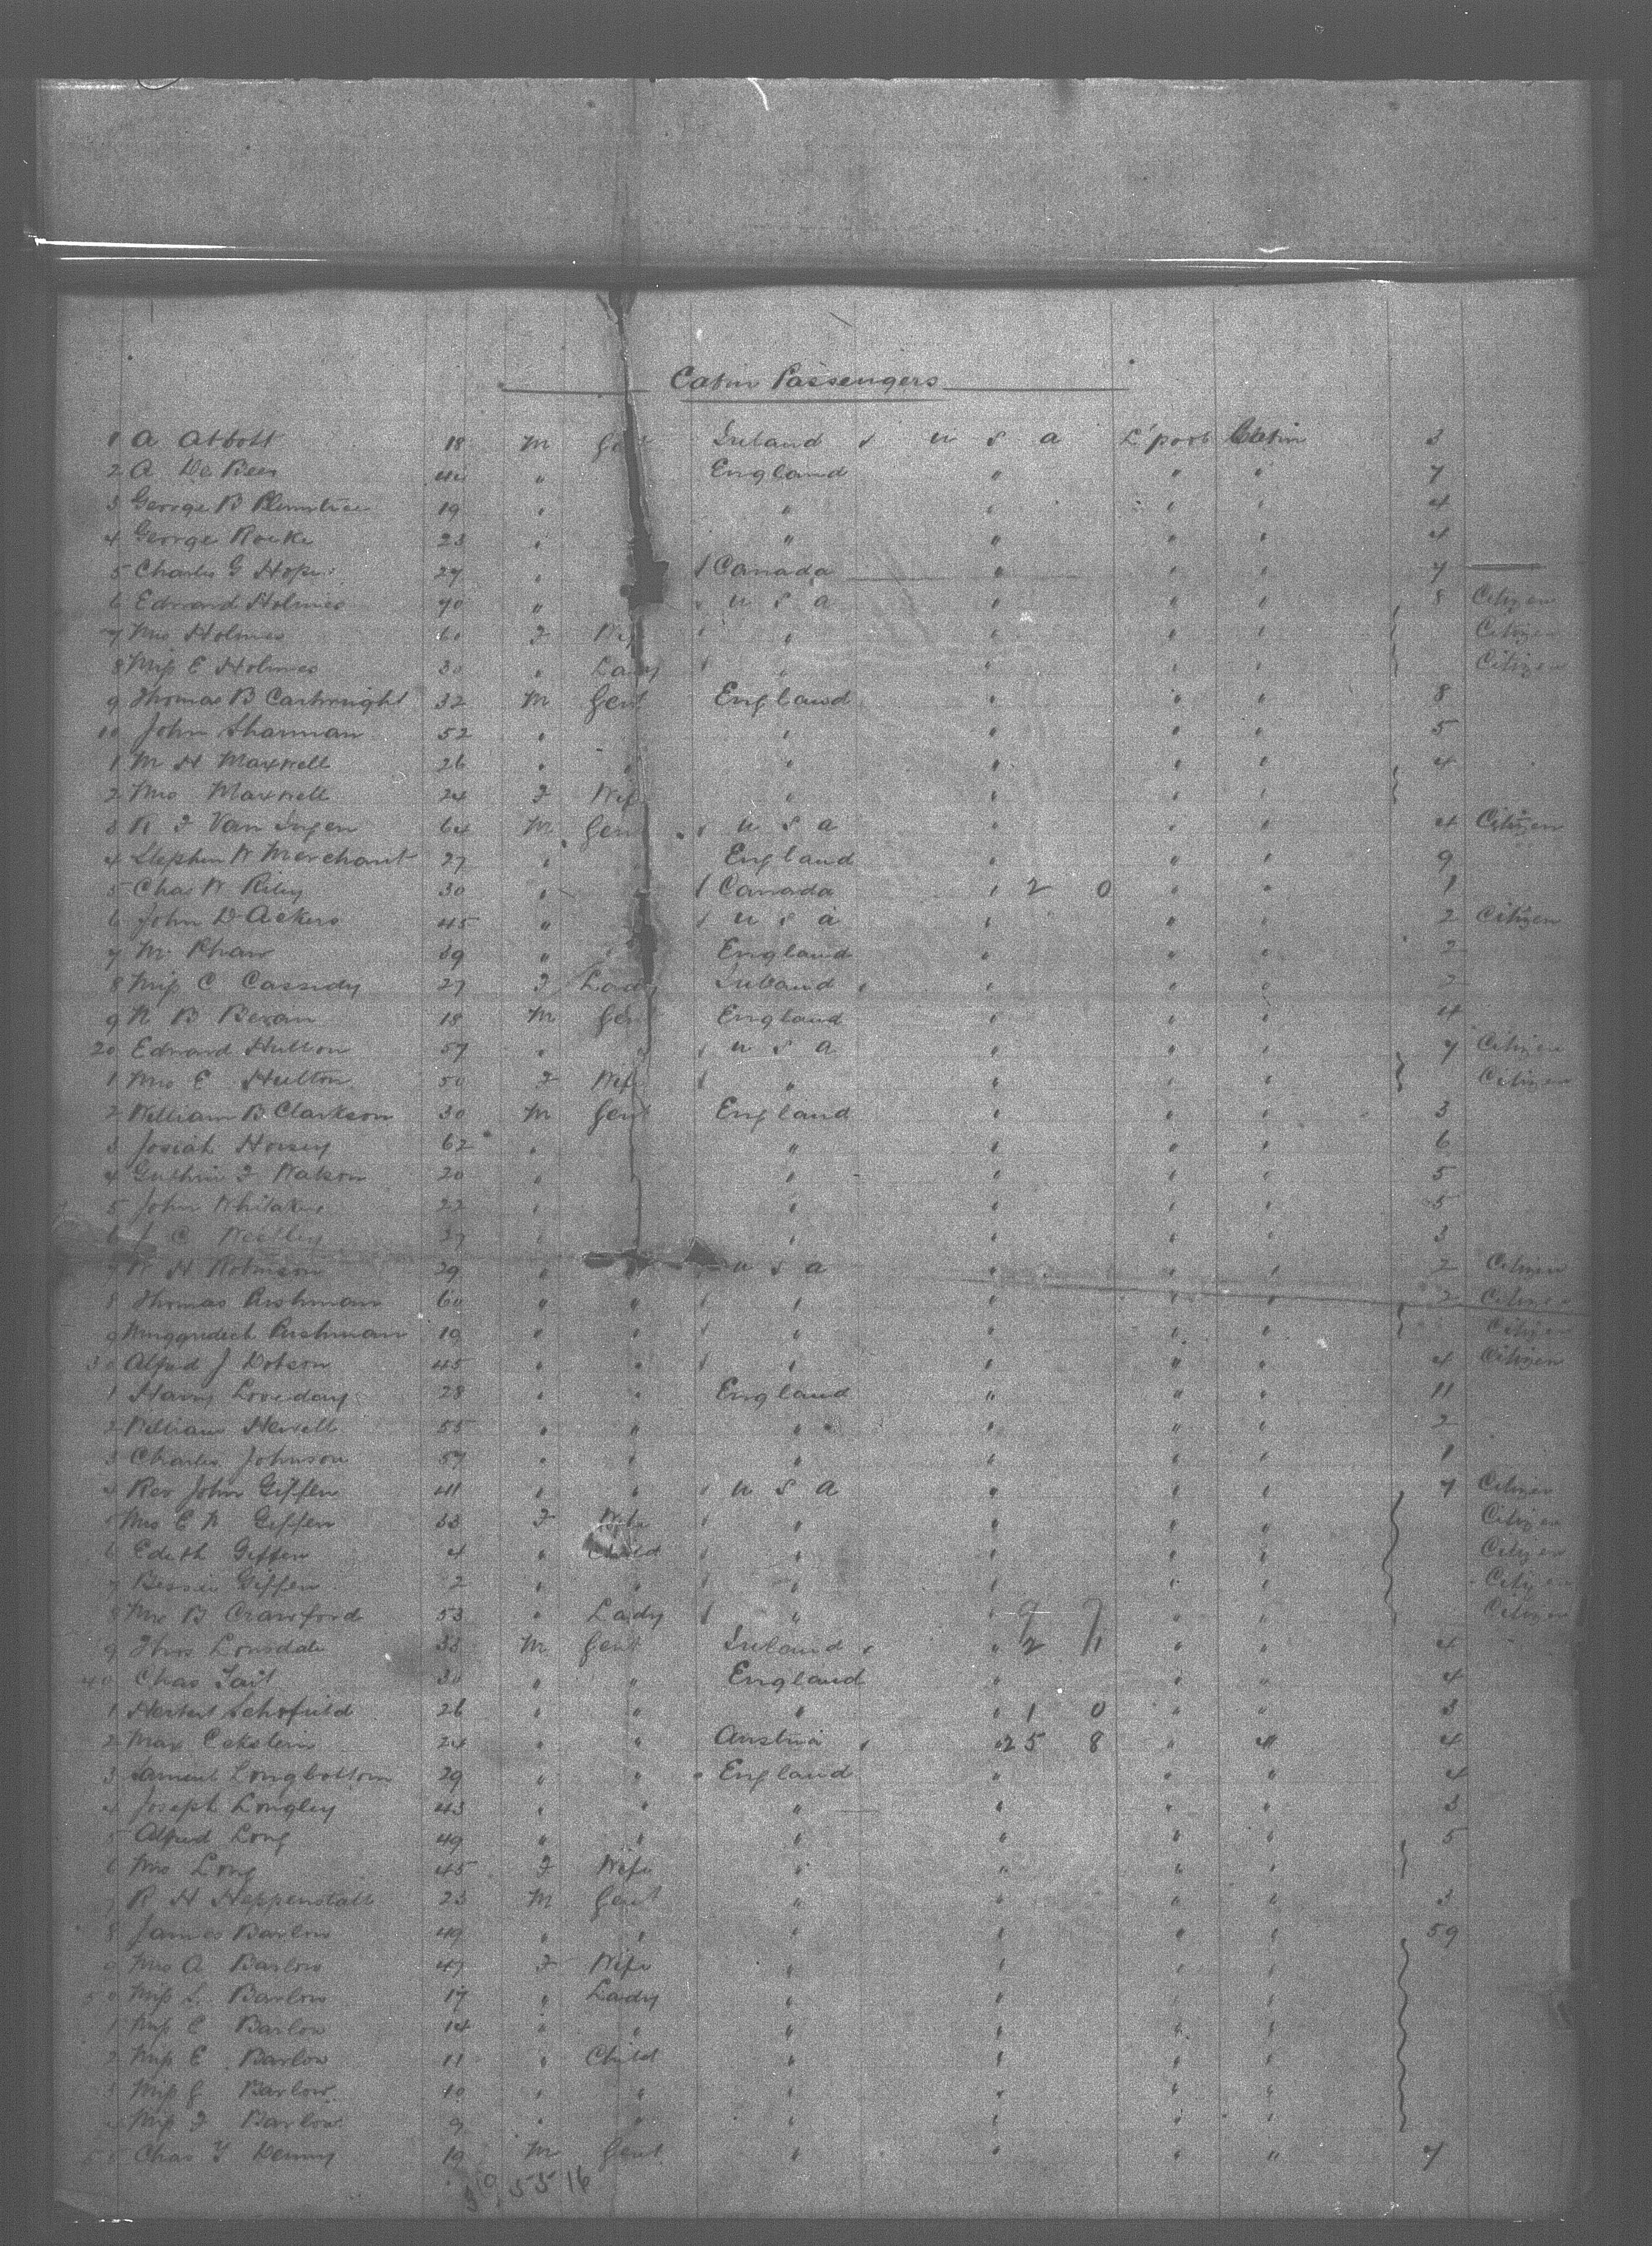 Cabin Passengers
1 A Abbott 18 M Gent Ireland U S A L'pool Cabin 3
2 A De Beer 44 " England " " " 7
3 George B 19 " " " " " 4
4 George Rourke 23 " " " " " 4
5 Charles G Hope 27 " Canada " " " 7
6 Edward Holmes 70 " U S A " " " 8 Citizen
7 Mrs Holmes 60 F Wife " " " " Citizen
8 Miss E Holmes 30 " Lady " " " " Citizen
9 Thomas B Cartwright 32 M Gent England " " " 8
10 John Sharman 52 " " " " " 5
1 M H Maxwell 26 " " " " " " 4
2 Mrs Maxwell 24 F Wife " " " "
3 R F Van Ingen 64 M Gent U S A " " " 4 Citizen
4 Stephen W Merchant 27 " " England " " " 9
5 Chas W Riley 30 " " Canada " 2 0 " " 1
6 John D Ackers 45 " U S A " " " 2 Citizen
7 Mr 39 " " England " " " 2
8 Miss C Cassidy 27 F Lady Ireland " " " 2
9 N B Bevan 18 M Gent England " " " 4
20 Edward Hulton 57 " " U S A " " " 7 Citizen
1 Mrs E Hulton 50 F Wife " " " " Citizen
2 William B Clarkson 30 M Gent England " " " 3
3 Josiah Horsey 62 " " " " " 6
4 Guthrie F Watson 20 " " " " " 5
5 John Whitaker 22 " " " " " 5
6 J C 27 " " " " " 3
7 W H Robinson 29 " " U S A " " " 2 Citizen
8 Thomas Pushman 60 " " " " " " 2 Citizen
9 Pushman 19 " " " " " " Citizen
30 Alfred J Dobson 45 " " " " " " 4 Citizen
1 Harry Loveday 28 " " England " " " 11
2 William Newell 55 " " " " " " 2
3 Charles Johnson 57 " " " " " " 1
4 Rev John Giffen 41 " " U S A " " " 7 Citizen
5 Mrs E N Giffen 33 F Wife " " " " Citizen
6 Edith Giffen 4 " Child " " " " Citizen
7 Bessie Giffen 2 " " " " " " Citizen
8 Mrs B Crawford 53 " Lady " " 9 9 " " Citizen
9 Thos Lonsdale 33 M Gent Ireland " 2 1 " " 4
40 Chas Tait 30 " " England " " " 4
1 Herbert Schofield 26 " " " " 1 0 " " 3
2 Max Eckstein 24 " " Austria " 25 8 " " 4
3 Samuel Longbottom 29 " " England " " " 4
4 Joseph Longley 43 " " " " " " 3
5 Alfred Long 49 " " " " " " 5
6 Mrs Long 45 F Wife " " " "
7 R H Heppenstall 23 M Gent " " " " 3
8 James Barlow 49 " " " " " " 59
9 Mrs A Barlow 47 F Wife " " " "
50 Miss L Barlow 17 " Lady " " " "
1 Miss C Barlow 14 " " " " " "
2 Miss E Barlow 11 " Child " " " "
3 Miss G Barlow 10 " " " " " "
4 Miss F Barlow 9 " " " " " "
55 Chas Y Denny 19 M Gent " " " " 7
5516